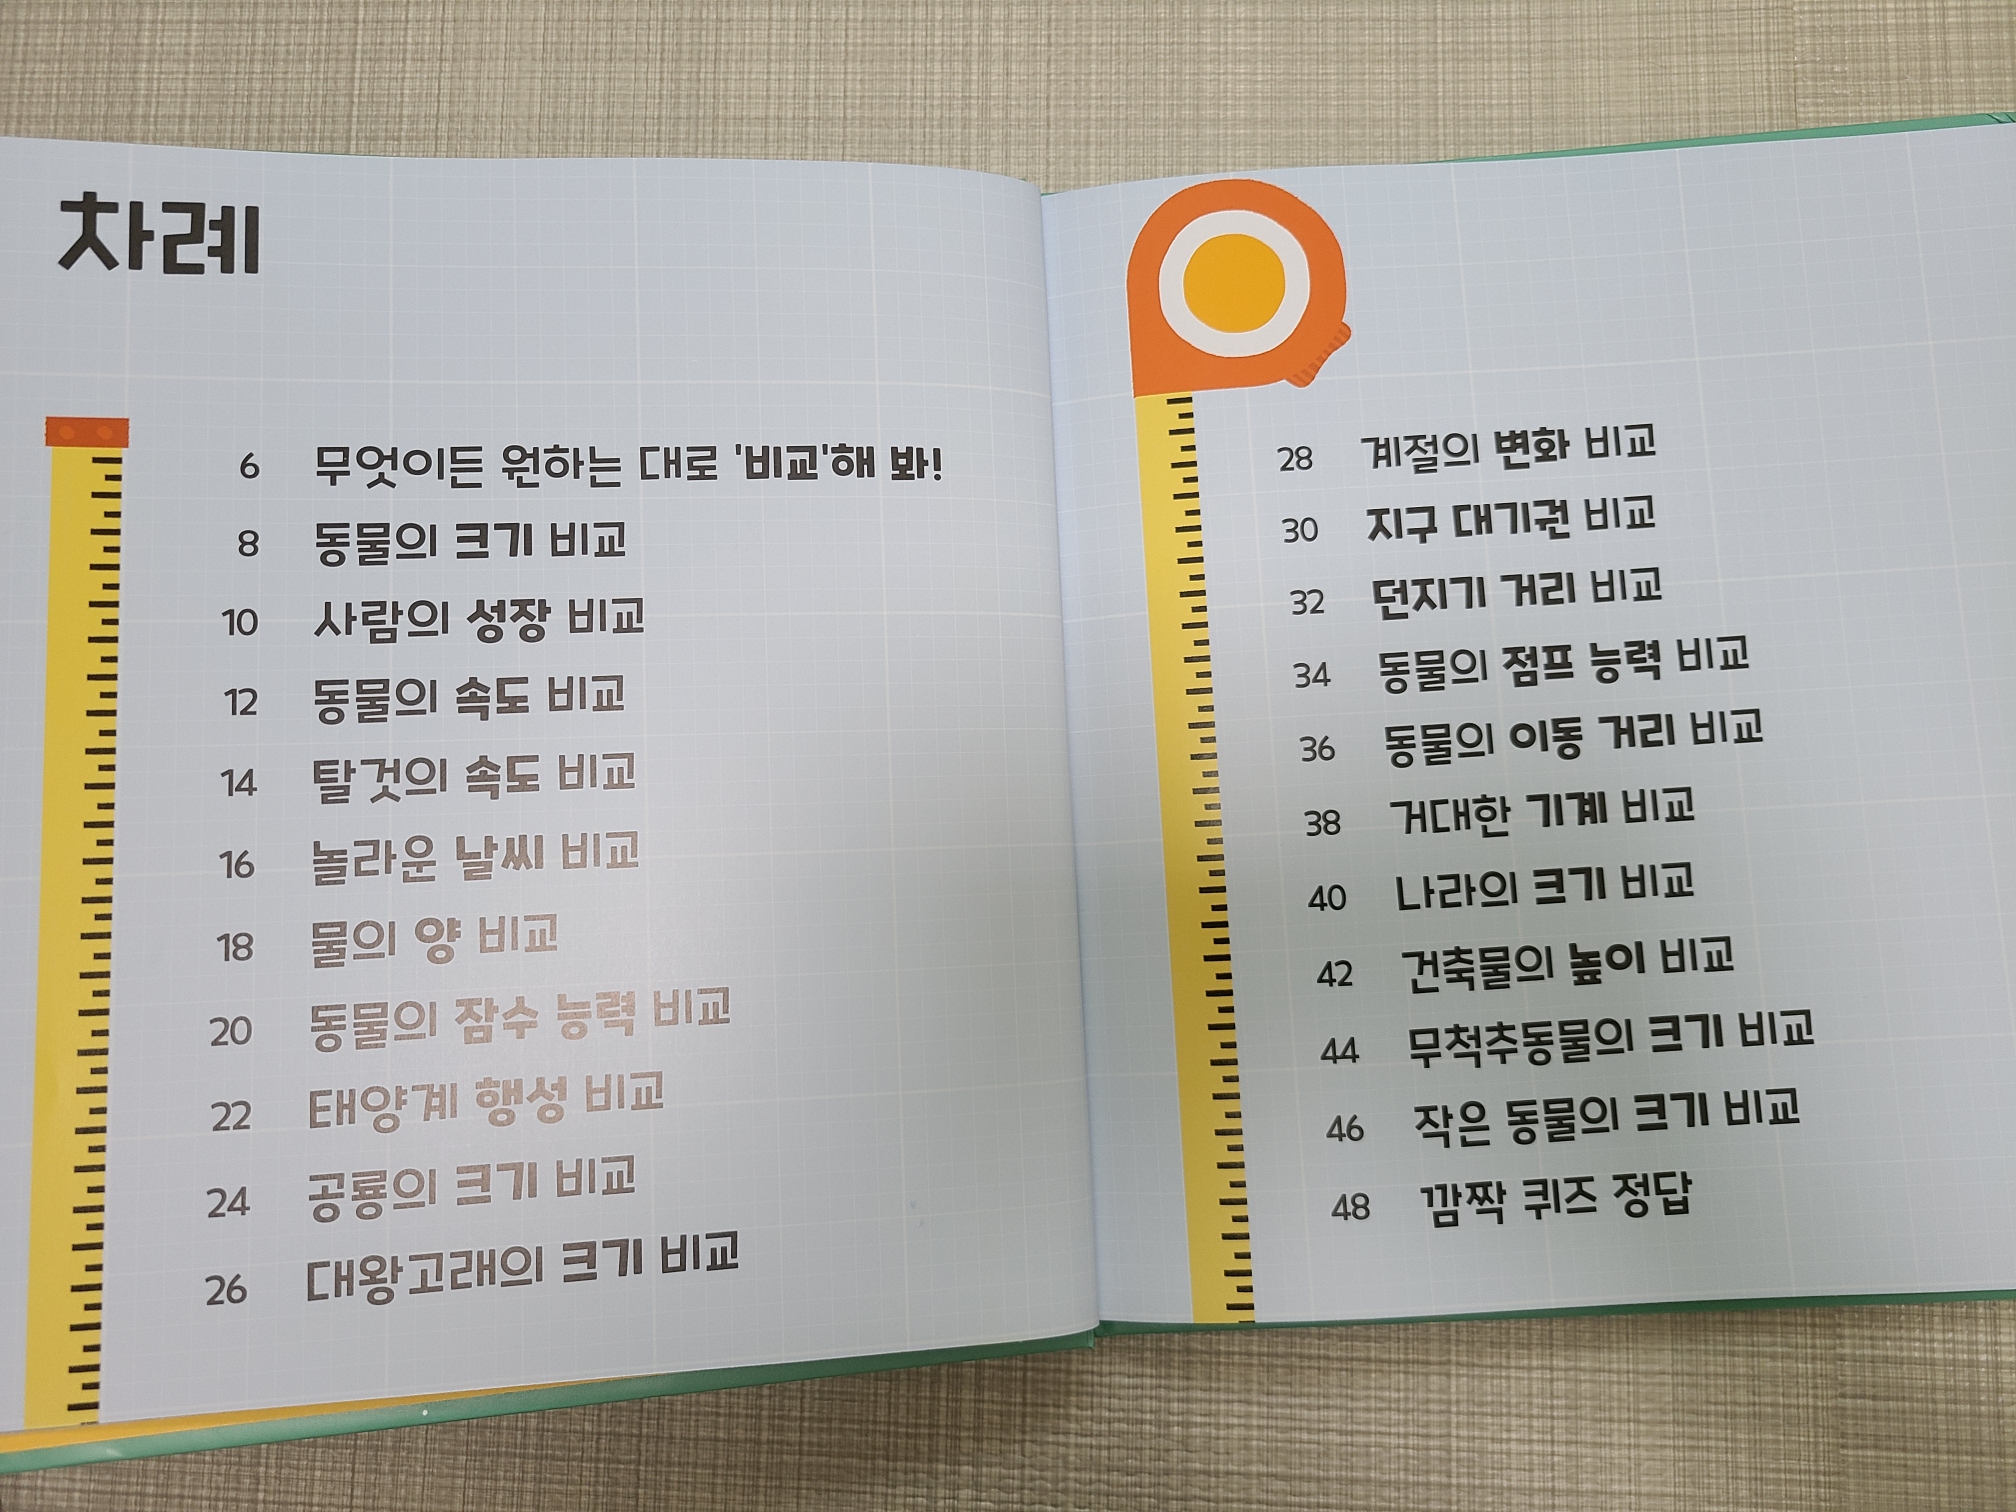 차례
6 무엇이든 원하는 대로 '비교'해 봐!
8 동물의 크기 비교
10 사람의 성장 비교
12 동물의 속도 비교
14 탈것의 속도 비교
16 놀라운 날씨 비교
18 물의 양 비교
20 동물의 잠수 능력 비교
22 태양계 행성 비교
24 공룡의 크기 비교
26 대왕고래의 크기 비교
28 계절의 변화 비교
30 지구 대기권 비교
32 던지기 거리 비교
34 동물의 점프 능력 비교
36 동물의 이동 거리 비교
38 거대한 기계 비교
40 나라의 크기 비교
42 건축물의 높이 비교
44 무척추동물의 크기 비교
46 작은 동물의 크기 비교
48 깜짝 퀴즈 정답